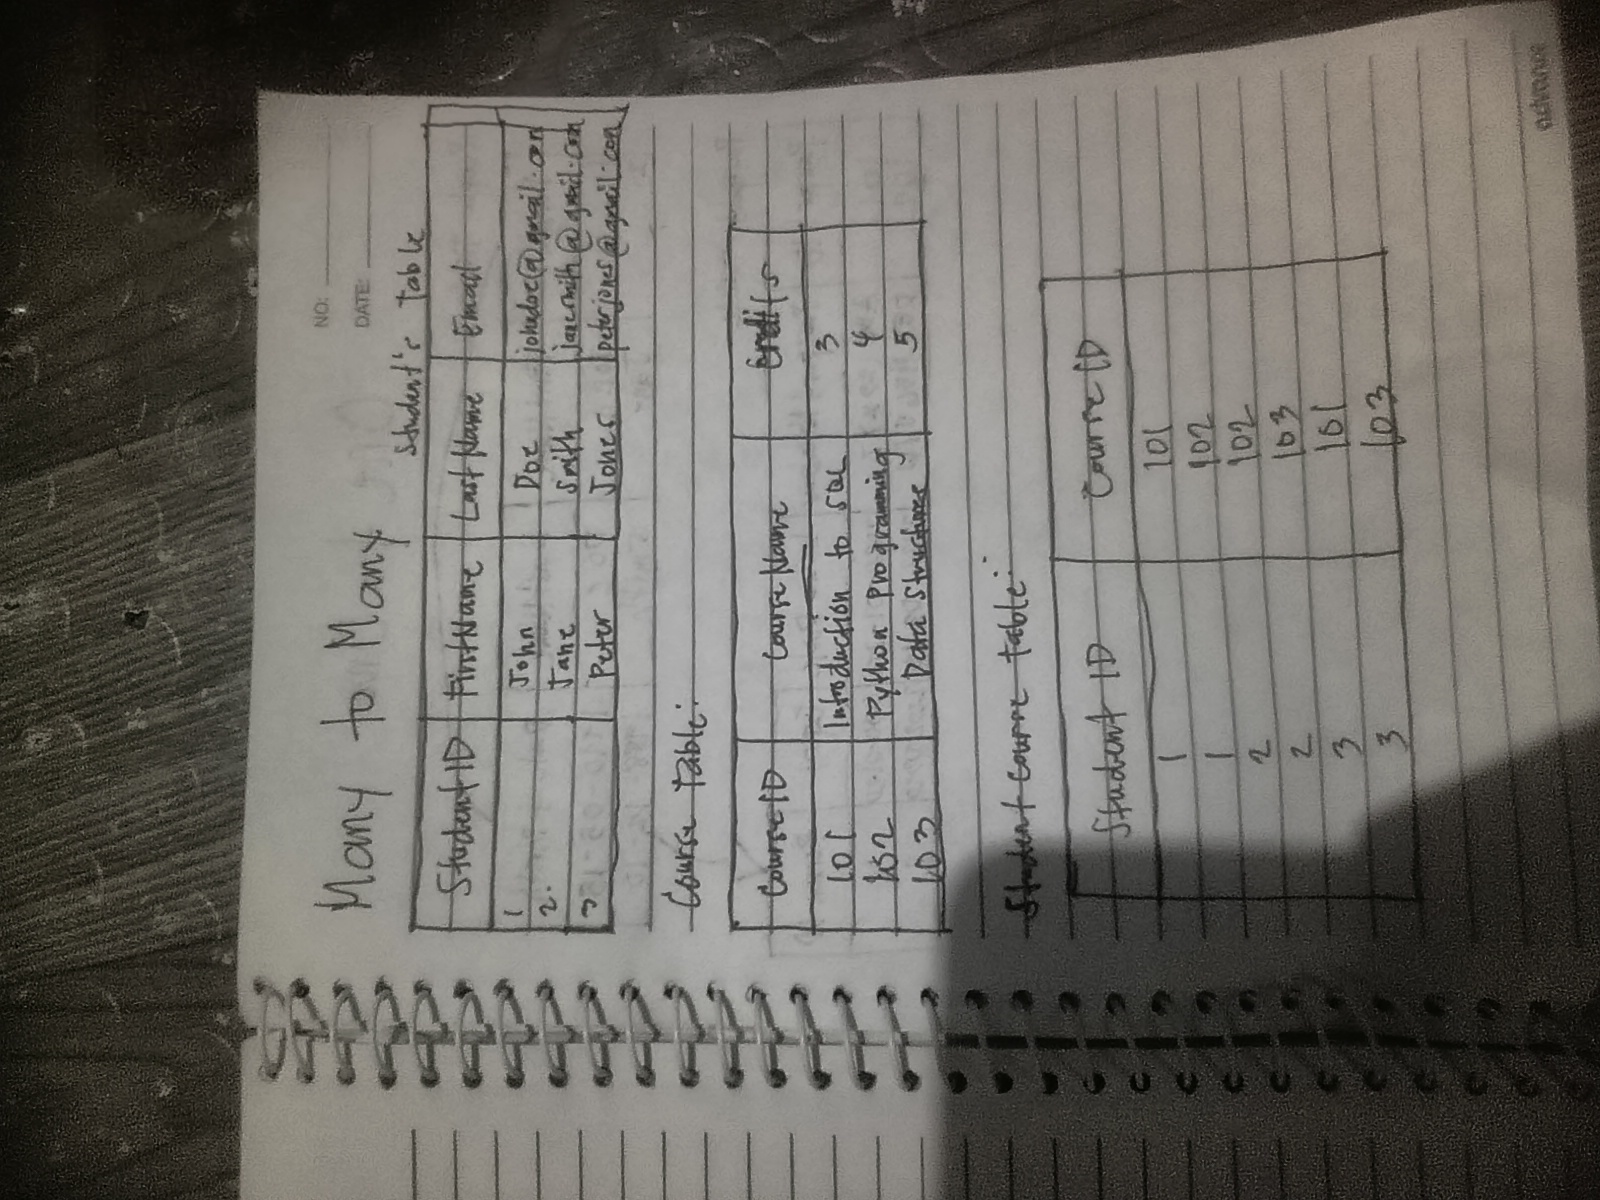 NO:
DATE:
Many to Many
Student's Table
StudentID FirstName LastName Email
1 John Doe johndoe@gmail.com
2. Jane Smith janesmith@gmail.com
3 Peter Jones peterjones@gmail.com
Course Table:
CourseID Course Name Credits
101 Introduction to SQL 3
102 Python Programming 4
103 Data Structures 5
Student Course Table:
Student ID Course ID
1 101
1 102
2 102
2 103
3 101
3 103
advance